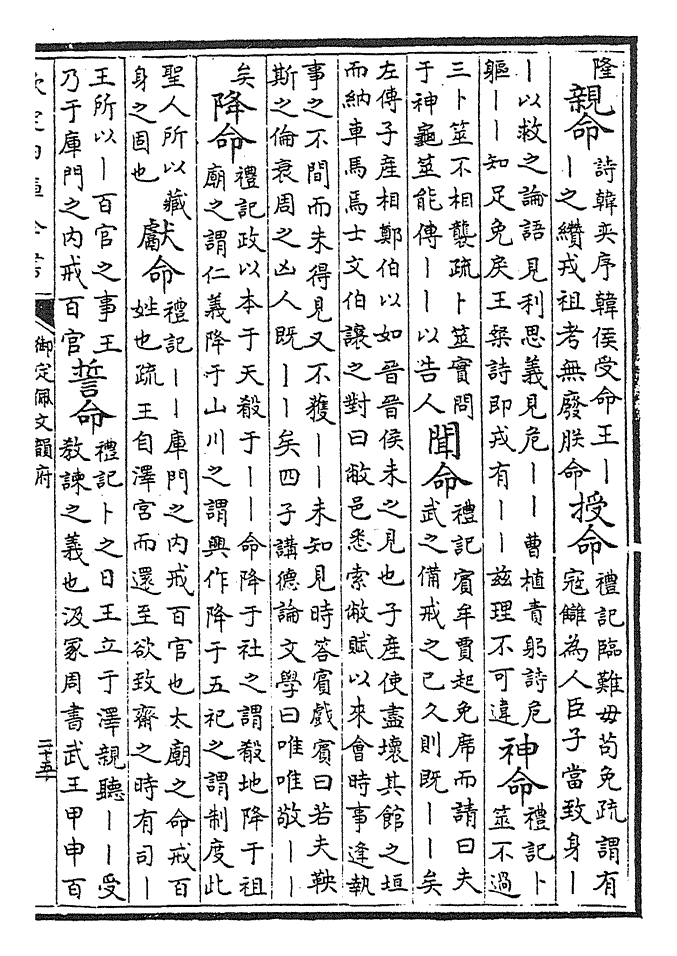 隆
親命
詩韓奕序韓侯受命王丨
丨之纘戎祖考無廢朕命
授命
禮記臨難毋苟免疏謂有
寇讎為人臣子當致身丨
丨以救之論語見利思義見危丨丨曹植責躬詩危
軀丨丨知足免戾王粲詩即戎有丨丨兹理不可違
神命
禮記卜
筮不過
三卜筮不相襲疏卜筮實問
于神龜筮能傳丨丨以告人
聞命
禮記賓牟賈起免席而請曰夫
武之備戒之已久則既丨丨矣
左傳子產相鄭伯以如晉晉侯未之見也子產使盡壞其館之垣
而納車馬焉士文伯讓之對曰敝邑悉索敝賦以來會時事逢執
事之不間而未得見又不獲丨丨未知見時答賓戲賓曰若夫鞅
斯之倫衰周之凶人既丨丨矣四子講德論文學曰唯唯敬丨丨
矣
降命
禮記政以本于天殽于丨丨命降于社之謂殽地降于祖
廟之謂仁義降于山川之謂興作降于五祀之謂制度此
聖人所以藏
身之固也
獻命
禮記丨丨庫門之内戒百官也太廟之命戒百
姓也疏王自澤宫而還至欲致齋之時有司丨
王所以丨百官之事王
乃于庫門之内戒百官
誓命
禮記卜之日王立于澤親聽丨丨受
教諫之義也汲冢周書武王甲申百
御定佩文韻府
二十五